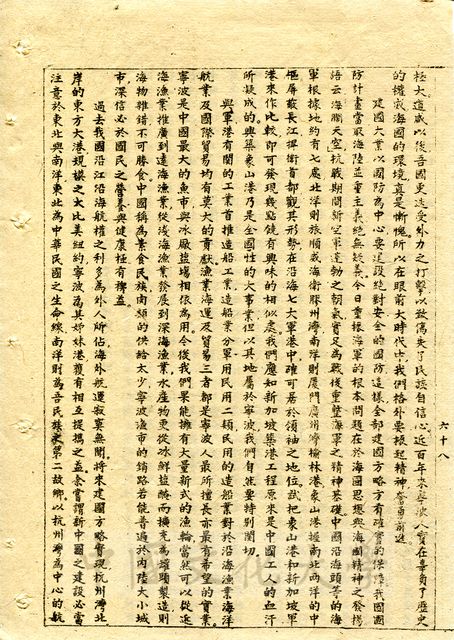 六十八
極大道咸以後吾國更迭受外力之打擊以致喪失了民族自信心近百年來寧波人實在辜負了歷史
的權威海國的環境真是慚愧所以在眼前大時代中我們格外要振起精神奮勇前進
建國大業以國防為中心要建設絕對安全的國防這樣全部建國方略方有確實的保障我國國
防計畫當取海陸並重主義絕無疑義今日重振海軍的根本問題在於海國思想與海國精神之發揚
語云海闊天空抗戰期間新空軍蓬勃之朝氣實足為戰後重整海軍之精神基礎中國沿海頭等的海
軍根據地約有七處北洋則旅順威海衛膠州灣南洋則廈門廣州灣榆林港象山港握南北兩洋的中
樞屏蔽長江捍衛首都觀其形勢在沿海七大軍港中確可居於領袖之地位試把象山港和新加坡軍
港來作比較即可發現幾點饒有興味的相似處我們應知新加坡築港工程原來是中國工人的血汗
所凝成的興築象山港乃是全國性的大事業但以其地屬於寧波我們自然要特別關切
與軍港有關的工業首推造船工業造船業分軍用民用二類民用的造船業對於沿海漁業海洋
航業及國際貿易均有莫大的貢獻漁業海運及貿易三者都是寧波人最所擅長亦最有希望的實業
寧波是中國最大的魚市與冰廠鹽場相依為用今後我們果能擁有大量新式的漁輪當然可以從近
海漁業推廣到遠海漁業從淺海漁業發展到深海漁業水產物更從冰鮮鹽醃而擴充為罐頭製造則
海物雜錯不可勝食中國稱為素食民族肉類的供給太少寧波漁市的銷路若能普遍於內陸大小城
市深信必於國民之營養與健康極有裨益
過去我國沿江沿海航權之利多為外人所佔海外航運寂寞無聞將來建國方略實現杭州灣北
岸的東方大港規模之大比美紐約寧波為其姊妹港獲有相互提攜之益余嘗謂新中國之建設必當
注意於東北與南洋東北為中華民國之生命線南洋則為吾民族之第二故鄉以杭州灣為中心的航